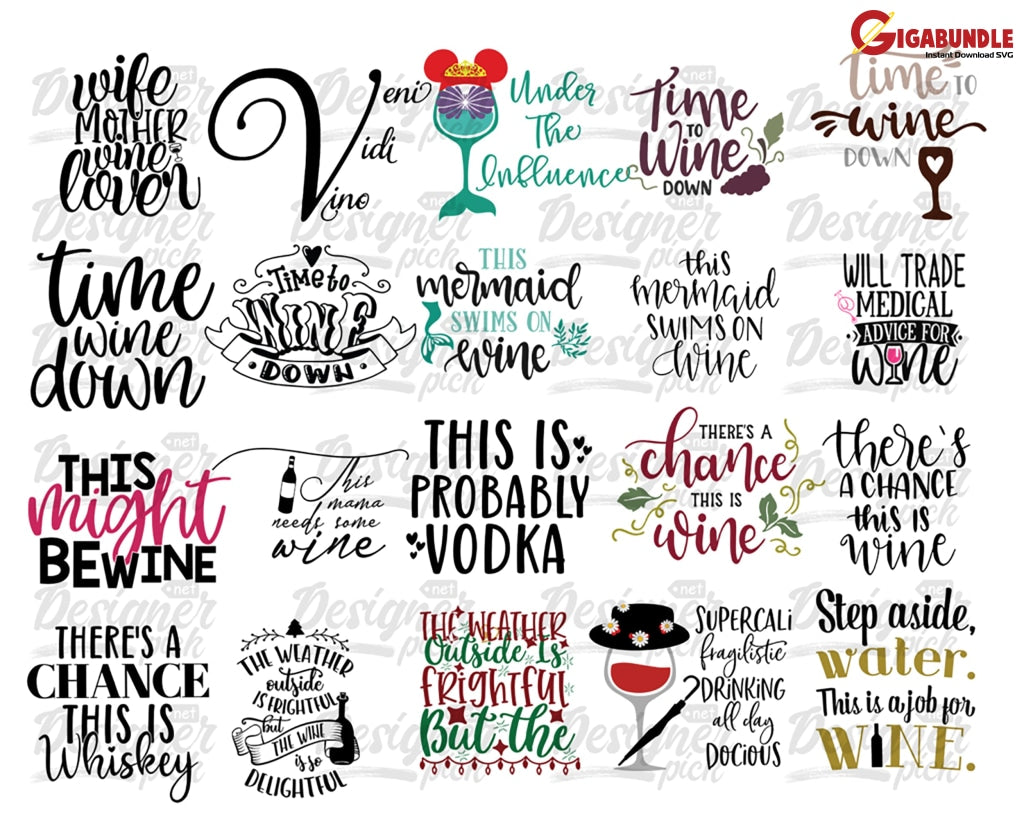 GIGABUNDLE
Instant Download SVG
wife
MOTHER
wine
lover
Veni
Vidi
Vino
Under
The
Influence
Time
TO
Wine
DOWN
time TO
wine
DOWN
time
wine
down
Time to
WINE
DOWN
THIS
mermaid
SWIMS ON
wine
this
mermaid
SWIMS ON
wine
WILL TRADE
MEDICAL
ADVICE FOR
WINE
THIS
might
BE WINE
This
mama
needs some
wine
THIS IS
PROBABLY
VODKA
THERE'S A
chance
THIS IS
wine
there's
A CHANCE
this IS
wine
THERE'S A
CHANCE
THIS IS
Whiskey
THE WEATHER
outside
IS FRIGHTFUL
but
THE WINE
is so
DELIGHTFUL
THE WEATHER
Outside Is
FRIGHTFUL
But the
SUPERCALi
fragilistic
DRINKING
all day
DOCIOUS
Step aside,
water.
This is a job for
WINE.
Designer
pick
.net